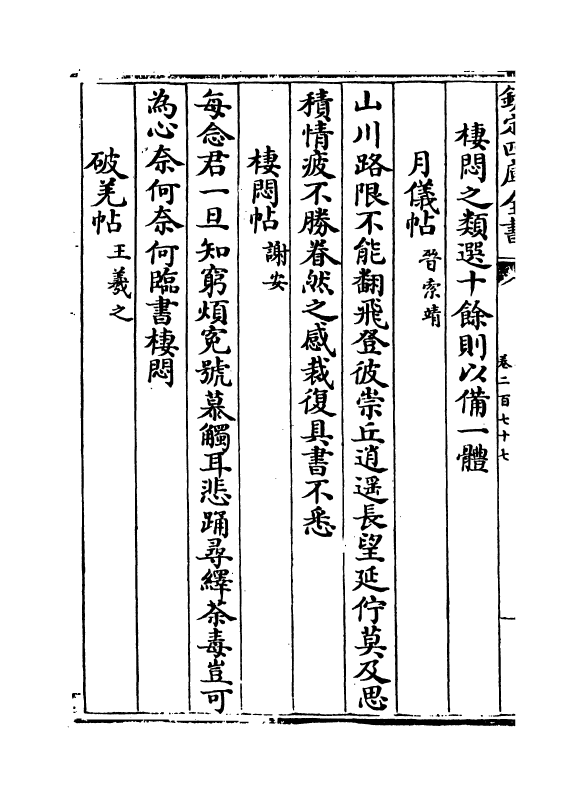 欽定四庫全書
卷二百七十七
棲悶之類選十餘則以備一體
月儀帖 晉索靖
山川路限不能翻飛登彼崇丘逍遥長望延佇莫及思
積情疲不勝眷然之感裁復具書不悉
棲悶帖 謝安
每念君一旦知窮煩冤號慕觸耳悲踊尋繹荼毒豈可
為心奈何奈何臨書棲悶
破羌帖 王羲之